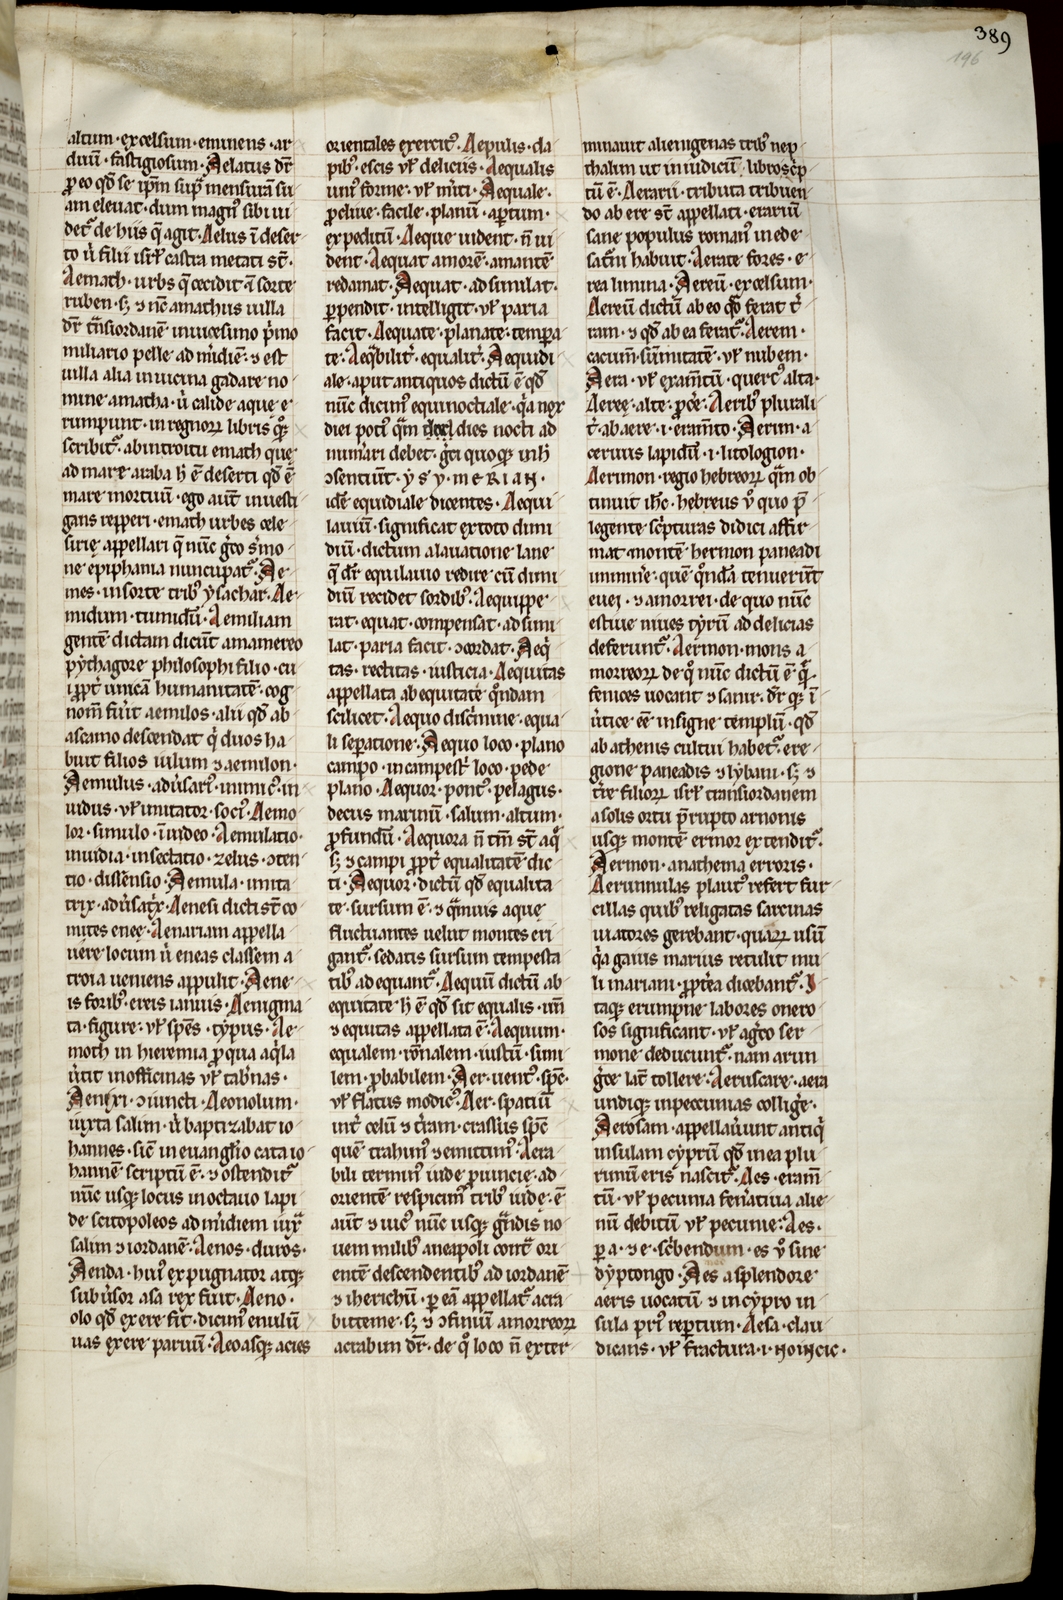 389
196
altum · excelsum · eminens · ar
duū · fastigiosum · Aelatus dr̄
ꝓ eo qd̄ se ip̄m supͣ mensurā su
am eleuat · dum magnꝰ sibi ui
det᷑ de hiis q̄ agit · Aelus ī deser
to ỉ filii isrl̄ castra metati st̄ ·
Aemath · urbs q̄ cecidit ī sorte
ruben · sꝫ ⁊ nc̄ amathus uilla
dr̄ tͣnsiordanē in uicesimo pͥmo
miliario pelle ad mͥdiē · ⁊ est
uilla alia in uicina gadare no
mine amatha · ỉ calide aque e
rumpunt · in regnoꝝ libris qͦꝫ
scribit᷑ · ab introitu emath que
ad mare araba h̄ ē deserti qd̄ ē
mare mortuū · ego aut̄ inuesti
gans rep̱peri · emath urbes cele
sirię appellari q̄ nūc gͨo s̓mo
ne epiphania nuncupat᷑ · Ae
mes · in sorte tribꝰ ysachar · Ae
midum · tumidū · Aemiliam
gentē dictam dicūt a mamereo
pythagore philosophi filio · cu
i ꝓpt̓ unicā humanitatē · cog
nom̄ fu̓it aemilos · alii qd̄ ab
ascanio descendat qͥ duos ha
buit filios iulum ⁊ aemilon ·
Aemulus · adu̓sariꝰ · inimicꝰ · in
uidus · vl̓ imitator · sociꝰ · Aemo
lor · simulo · īuideo · Aemulatio ·
inuidia · insectatio · zelus · ↄten
tio · dissensio · Aemula · imita
trix · adu̓satͥx · Aenesi dicti st̄ co
mites eneę · Aenariam appella
uere locum ỉ eneas classem a
troia ueniens appulit · Aene
is foribꝰ · ereis ianuis · Aenigma
ta · figure · vl̓ sp̄es · typus · Ae
moth in hieremia ꝓ qua aqͥla
u̓tit in officinas vl̓ tab̓nas ·
Aenexi · ↄiuncti · Aeonolum ·
iuxta salim · ỉ baptizabat io
hannes · sic̄ in euangl̓io cata io
hannē scriptū ē · ⁊ ostendit᷑
nūc usqꝫ locus in octauo lapi
de scitopoleos ad mͥdiem iuxͣ
salim ⁊ iordanē · Aenos · duros ·
Aenda · huiꝰ expugnator atqꝫ
subu̓sor asa rex fuit · Aeno ·
olo qd̄ ex ere fit · dicimꝰ enulū
uas ex ere paruū · Aeoasqꝫ acies
orientales exercitꝰ · Aepulis · da
pibꝰ · escis vl̓ deliciis · Aequalis
uniꝰ forme · vl̓ mͥti · Aequale ·
ꝓcliue · facile · planū · apertum ·
expeditū · Aeque uident · n̄ ui
dent · Aequat amorē · amantē
redamat · Aequat · adsimilat ·
ꝑpendit · intelligit · vl̓ paria
facit · Aequate · planate · tempera
te · Aeqͣbilit̓ · equalit̓ · Aequidi
ale · aput antiquos dictū ē qd̄
nūc dicimꝰ equinoctiale · qͥa nox
diei potiꝰ qͣm dies nocti ad
num̓ari debet · gͨi quoqꝫ in h̄
ↄsentiūt · ysymerian ·
idē equidiale dicentes · Aequi
lauiū · significat ex toto dimi
diū · dictum a lauatione lane
q̄ dr̄ equilauio redire cū dimi
diū recidet sordibꝰ · Aequippe
rat · equat · compensat · adsimi
lat · paria facit · ↄcordat · Aeqͥ
tas · rectitas · iusticia · Aequitas
appellata ab equitate qͦndam
scilicet · Aequo disc̓mine · equa
li sep̱atione · Aequo loco · plano
campo · in campestͥ loco · pede
plano · Aequor · pontꝰ · pelagus ·
decus marinū · salum · altum ·
ꝓfundū · Aequora n̄ tm̄ st̄ aqͥ
sꝫ ⁊ campi ꝓpt̓ equalitatē dic
ti · Aequor · dictū qd̄ equalita
te · sursum ē · ⁊ qͣmuis aquę
fluctuantes uelut montes eri
gant᷑ · sedatis sursum tempesta
tibꝰ adequant᷑ · Aequū dictū ab
equitate h̄ ē qd̄ sit equalis · un̄
⁊ equitas appellata ē · Aequum ·
equalem · rōnalem · iustū · simi
lem · ꝓbabilem · Aer · uentꝰ · sp̄c ·
vl̓ flatus modicꝰ · Aer · spatiū
int̓ celū ⁊ t̓ram · crassiꝰ sp̄c
quē trahimꝰ ⁊ emittimꝰ · Aera
bili terminꝰ iudę ꝓuincię · ad
orientē respiciens tribꝰ iudę · ē
aut̄ ⁊ uicꝰ nūc usqꝫ gͣndis no
uem milibꝰ a neapoli contͣ ori
entē descendentibꝰ ad iordanē
⁊ iherichū · ꝑ eā appellat᷑ acra
bittene · sꝫ ⁊ ↄfiniū amorreoꝝ
acrabim dr̄ · de qͦ loco n̄ exter
minauit alienigenas tribꝰ nep
thalim ut in iudicū librosc̓p
tū ē · Aerariū · tributa tribuen
do ab ere st̄ appellati · erariū
sane populus romanꝰ in ede
sat̓ni habuit · Aerate fores · e
rea limina · Aereū · excelsum ·
Aereū dictū ab eo qd̄ ferat t̓
ram · ⁊ qd̄ ab ea ferat᷑ · Aerem ·
cacum̄ · sūmitatē · vl̓ nubem ·
Aera · vl̓ eram̄tū · quercꝰ alta ·
Aereę · alte · ꝓcerę · Aeribꝰ plurali
t̓ · ab aere · i · eram̄to · Aerim · a
ceruus lapidū · i · litologion ·
Aerimon · regio hebreoꝝ qͣm ob
tinuit ih̄c · hebreus v̓o quo p̄
legente sc̓pturas didici affir
mat montē hermon paneadi
imminere · quē qͦndā tenuerūt
euei · ⁊ amorrei · de quo nūc
estiue niues tyrū ad delicias
deferunt᷑ · Aermon · mons a
morreoꝝ de qͦ nūc dictū ē qͥ
fenices uocant ⁊ sanir · dr̄ qꝫ ī
u̓tice eē insigne templū · qd̄
ab athenis cultui habet᷑ · ere
gione paneadis ⁊ lybani · sꝫ ⁊
t̓re filioꝝ isrl̄ transiordanem
a solis ortu p̄rupto arnonis
usqꝫ montē ermor extendit᷑ ·
Aermon · anathema erroris ·
Aerumnulas plautꝰ refert fur
cillas quibꝰ religatas sarcinas
uiatores gerebant · quaꝝ usū
qͥa gaius marius retulit mu
li mariani · ꝓpt̓ea dicebant᷑ · I
taqꝫ erumpne labores onero
sos significant · vl̓ a gͨeo ser
mone deducunt᷑ · nam arun
gͨce lat̄ tollere · Aeruscare · aera
undiqꝫ in peccunias collige̓ ·
Aerosam · appellau̓unt antiqͥ
insulam cyprū qd̄ in ea plu
rimū eris nascit᷑ · Aes · eram̄
tū · vl̓ pecunia fen̓atiua alie
nū debitū vl̓ pecunie · Aes ·
ꝑ a · ⁊ e · sc̓bendum · es v̓o sine
dyptongo · Aes a splendore
aeris uocatū ⁊ in cypro in
sula prͥꝰ rep̱tum · Aesa · clau
dicans · vl̓ fractura · i ·